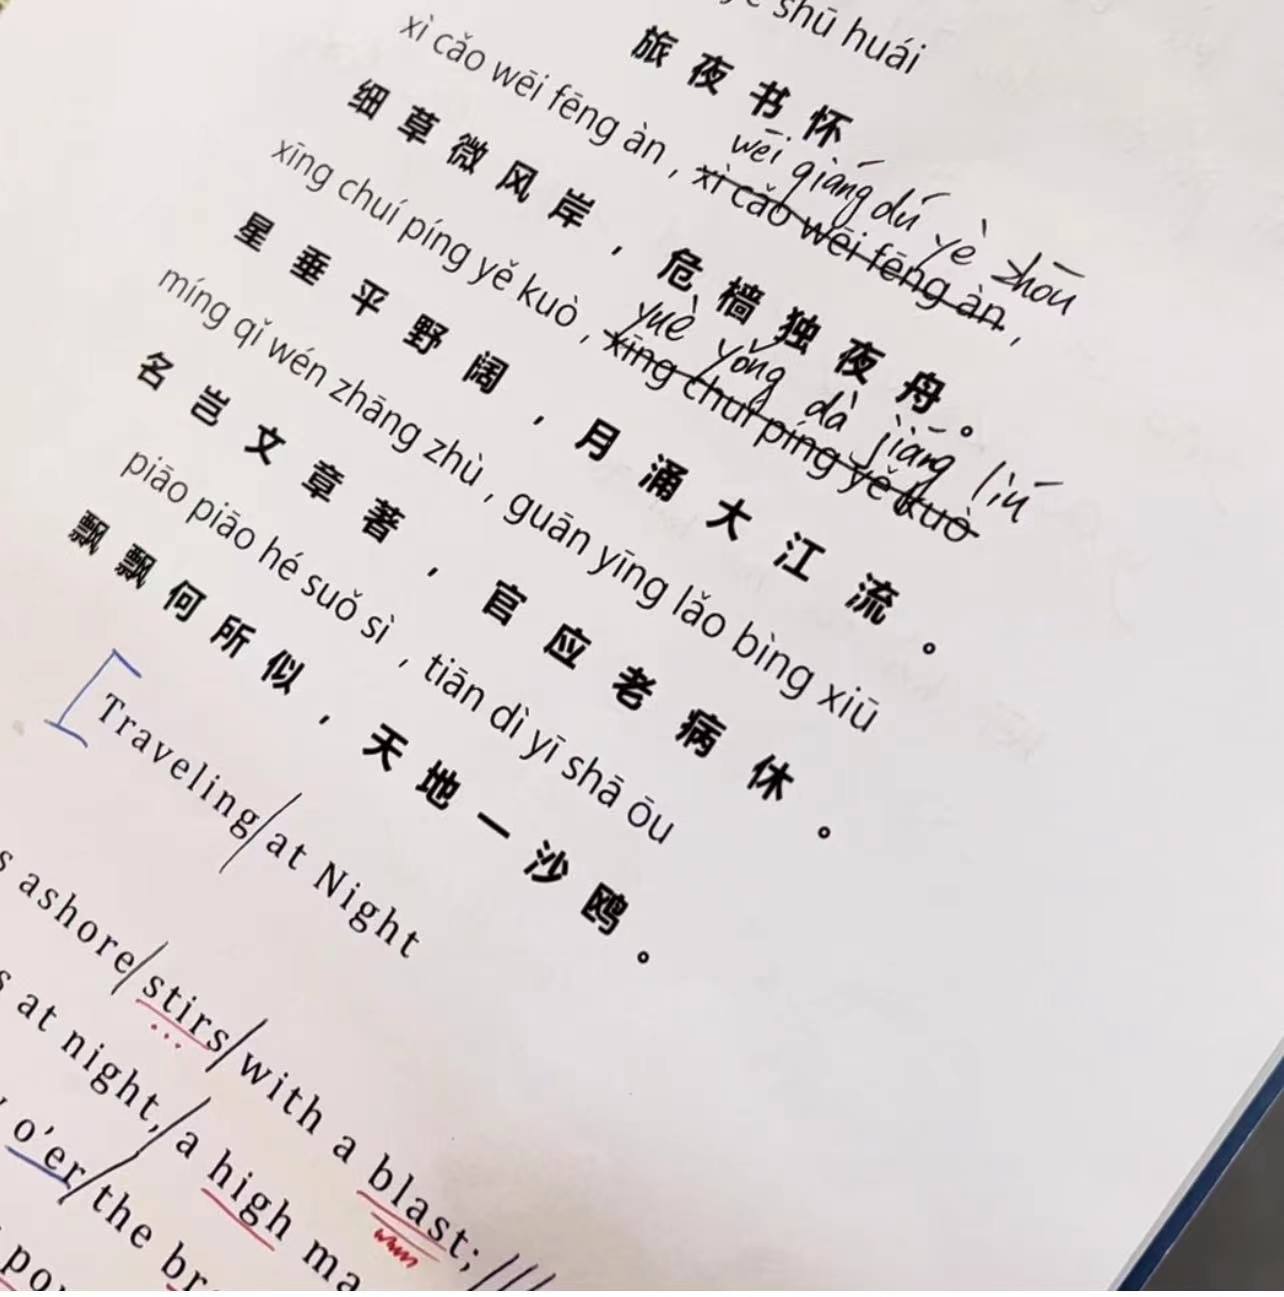 shū huái
旅夜书怀
xì cǎo wēi fēng àn , xì cǎo wēi fēng àn ,
wēi qiáng dú yè zhōu
细草微风岸，危樯独夜舟。
xīng chuí píng yě kuò , xīng chuí píng yě kuò
yuè yǒng dà jiāng liú
星垂平野阔，月涌大江流。
míng qǐ wén zhāng zhù , guān yīng lǎo bìng xiū
名岂文章著，官应老病休。
piāo piāo hé suǒ sì , tiān dì yī shā ōu
飘飘何所似，天地一沙鸥。
Traveling at Night
ashore stirs with a blast;
at night, a high
o'er the